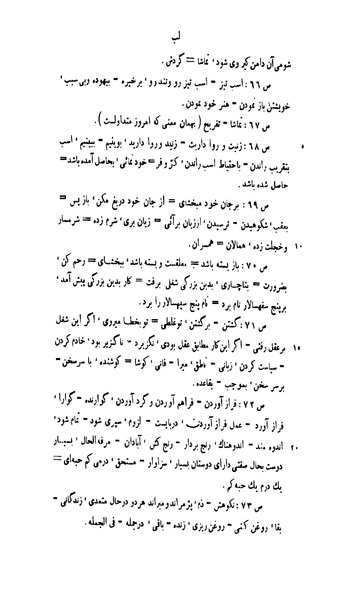 لب
شومی آن دامن‌گیر وی شود ، تماشا = گردش .
ص ۶۶ : اسب تیز - اسب تیز رو و تند رو ، برخیره - بیهوده و بی سبب ،
خویشتن باز نمودن - هنر خود نمودن .
ص ۶۷ : تماشا - تفریح ( بهمان معنی که امروز متداولست ) .
۵
ص ۶۸ : زنیت و روا داریت - زنید و روا دارید ، بوینیم - ببینیم ، اسب
بتقریب راندن - باحتیاط اسب راندن ، کر و فر = خود نمائی ، بحاصل آمده باشد =
حاصل شده باشد .
ص ۶۹ : بر جان خود مبخشدی = از جان خود دریغ مکن ، باز پس =
بعقب ، شکوهیدن - ترسیدن ، ارزبان بر آئی = زبان بری ، شرم زده = شرمسار
۱۰
وخجلت زده ، همالان = همسران .
ص ۷۰ : باز بسته باشد = معلقست و بسته باشد ، ببخشای = رحم کن ،
بضرورت = بناچاری ، بدین بزرگی شغلی برفت = کار بدین بزرگی پیش آمد ،
بر پنج سفهسالار نام برد = نام پنج سپهسالار را برد .
ص ۷۱ : گشتن - برگشتن ، تو غلطی = تو بخطا میروی ، اگر این شغل
۱۵
بر عقل رفتی - اگر این کار مطابق عقل بودی ، نگزیرد - ناگزیر بود ، خادم کردن
- سیاست کردن ، زبانی - نطق ، میرا - فانی ، کوشا = کوشنده ، با سر سخن -
بر سر سخن ، بموجب - بقاعده .
ص ۷۲ : فراز آوردن - فراهم آوردن و گرد آوردن ، گوارنده - گوارا ،
فراز آورد - عمل فراز آوردن ، دربایست - لزوم ، سپری شود - تمام شود ،
اندوه مند - اندوهناک ، رنج بردار - رنج کش ، آبادان - مرفه الحال ، بسیار
۲۰
دوست بحال صفتی دارای دوستان بسیار ، سزاوار - مستحق ، درمی کم حبه‌ای =
یک درم یک حبه کم .
ص ۷۳ : نکوهش - ذم ، پژمراند و میراند هر دو در حال متعدی ، زندگانی -
بقا ، روغن کنی - روغن ریزی ، زنده - باقی ، درجمله - فی الجمله .